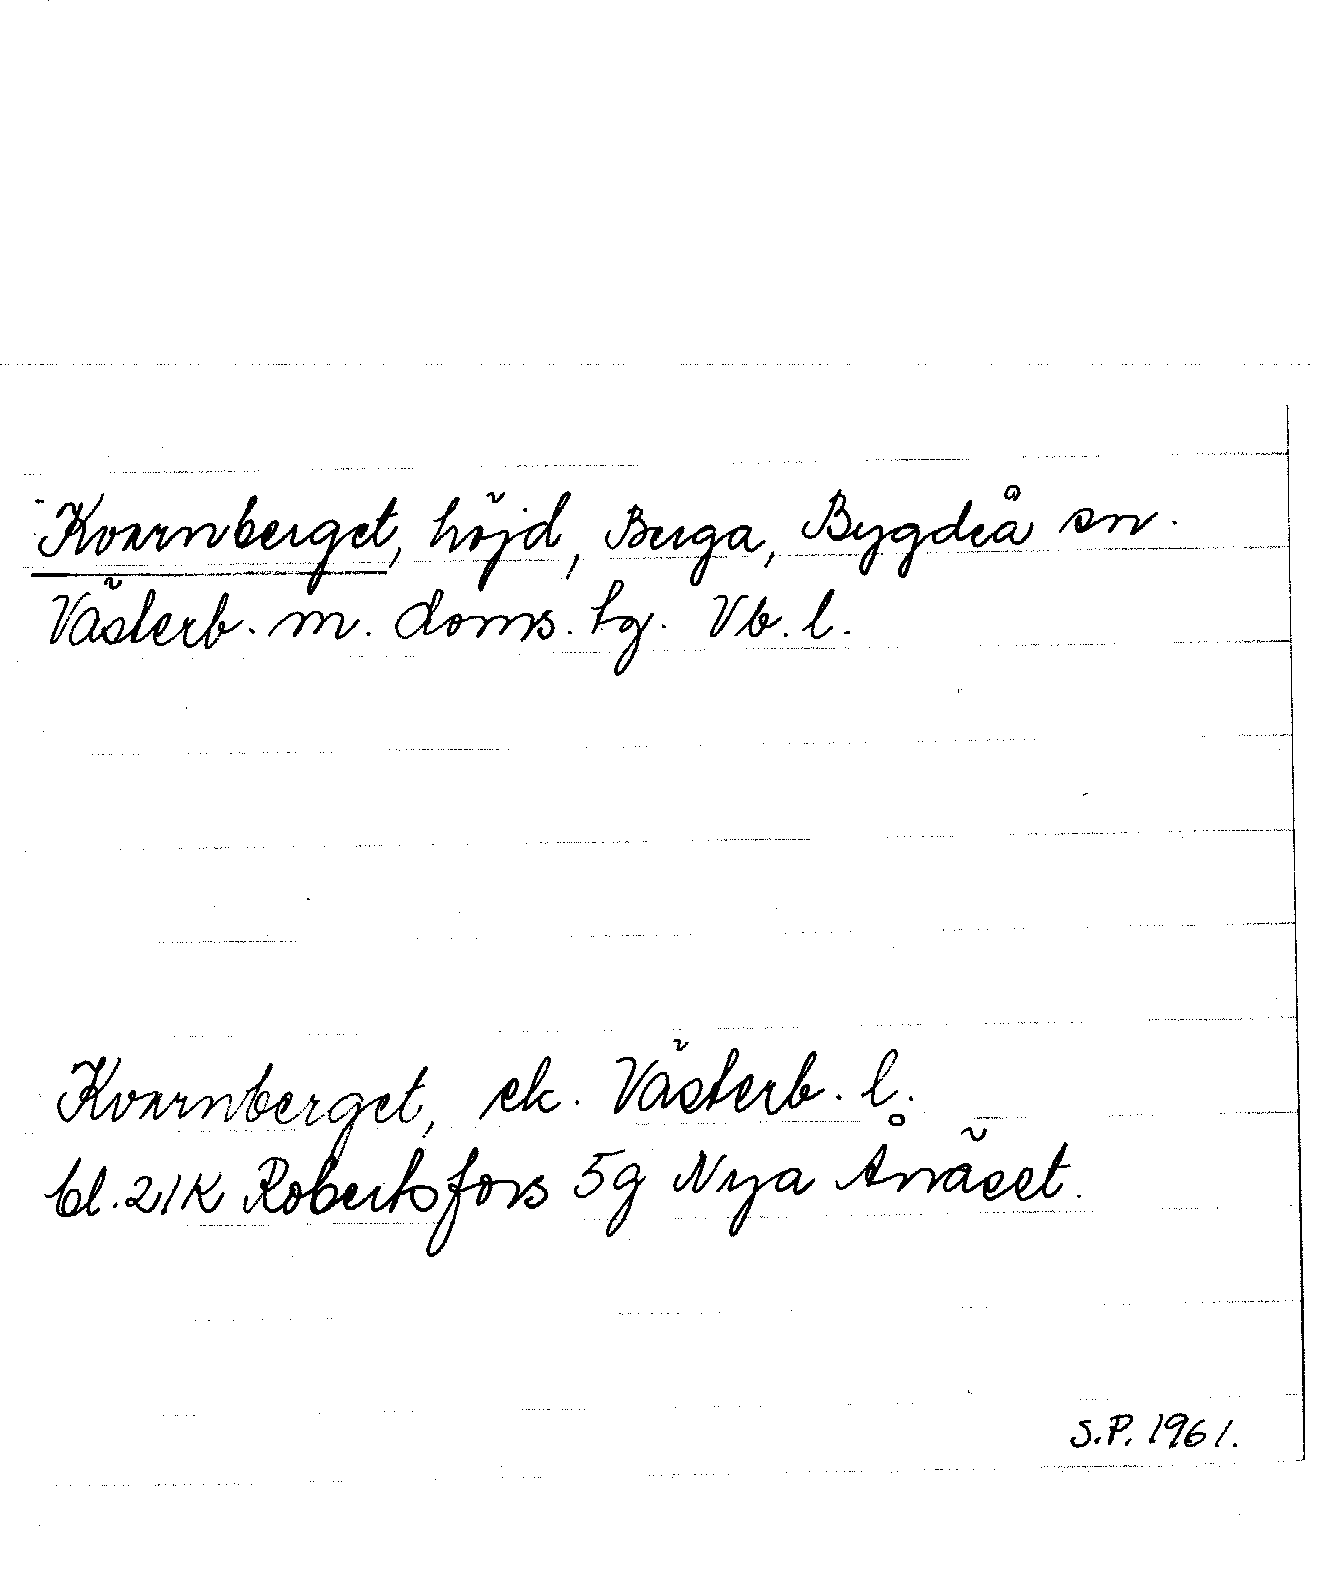 Kvarnberget, höjd, Berga, Bygdeå sn.
Västerb. m. doms. tg. Vb. l.
Kvarnberget, ek. Västerb. l.
bl. 21K Robertsfors 5g Nya Ånäset.
S.P. 1961.